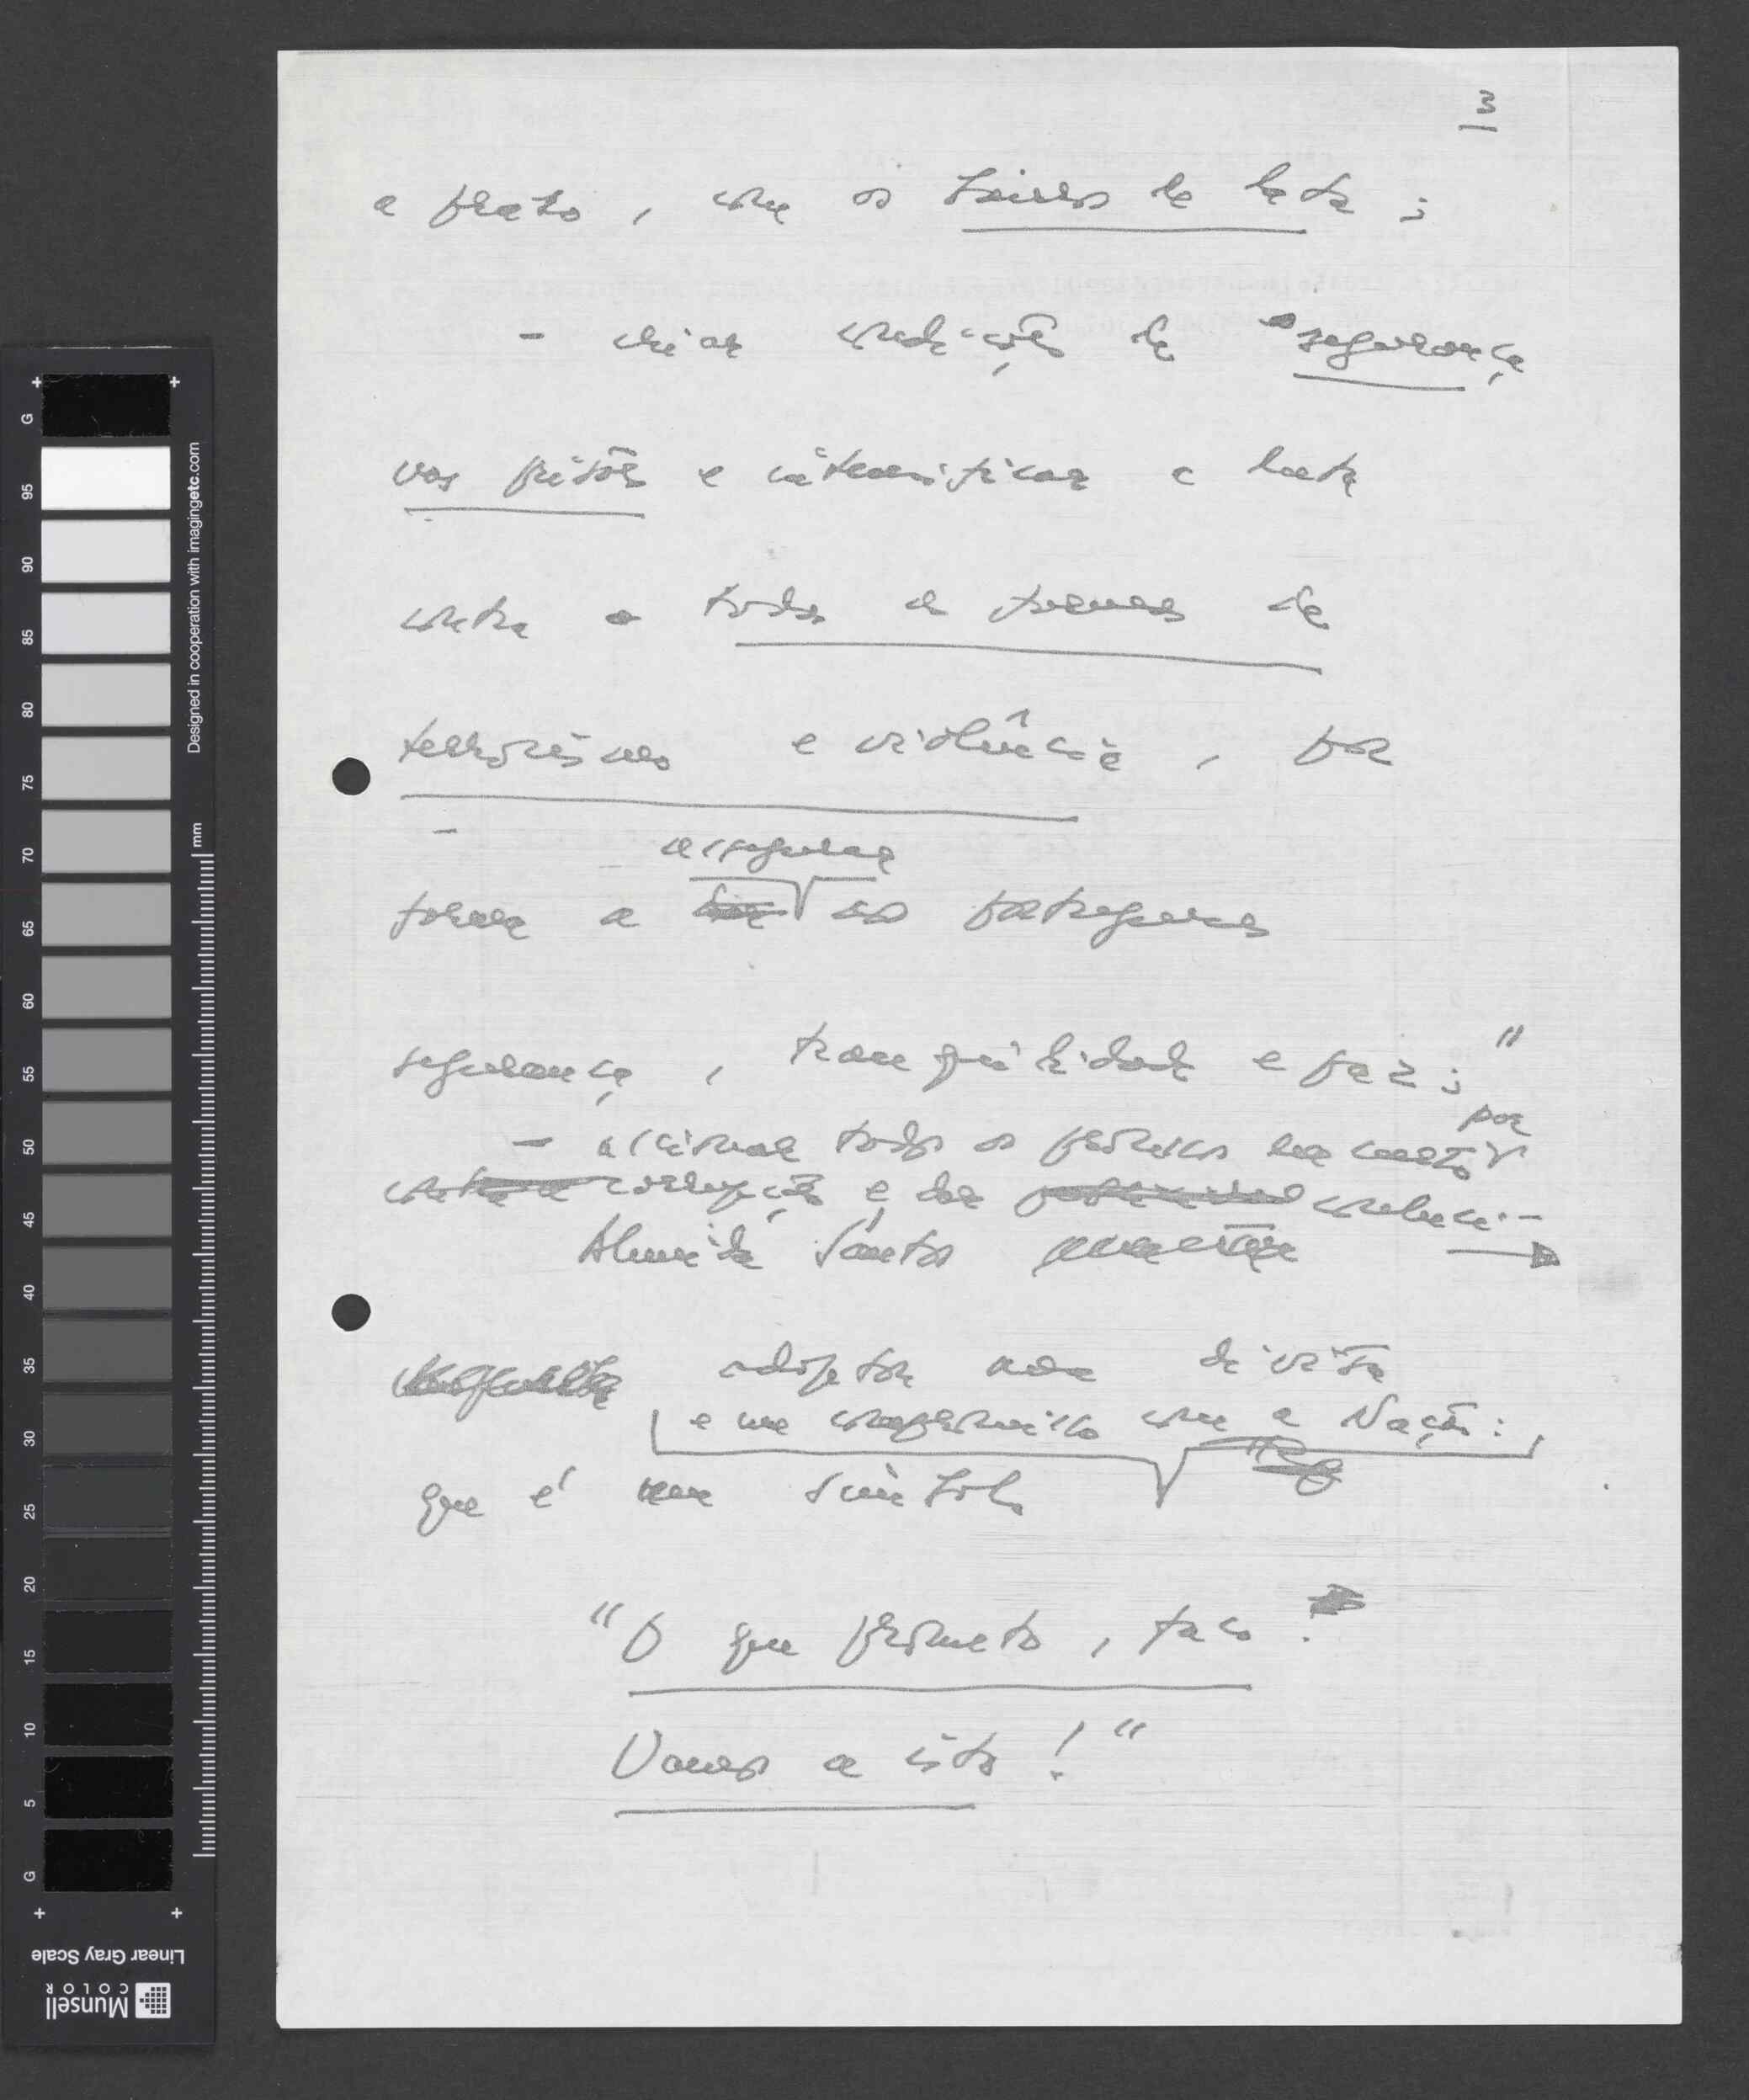 3
a prazo, com os bairros de lata;
- criar condições de segurança
nas prisões e intensificar a luta
contra a todas as formas de
terrorismo e violência, por
assegurar
forma a dar aos portugueses
segurança, tranquilidade e paz;"
por
- accionar todos os processos em
contra a corrupção e dar
Almeida Santos
adoptou uma divisa
e um compromisso com a Nação:
que é um símbolo
"O que prometo, faço!
Vamos a isto!"
G 95 90 85 80 75 70 65 60 55 50 45 40 35 30 25 20 15 10 5 G
Designed in cooperation with imagingetc.com
mm
Linear Gray Scale
Munsell
COLOR